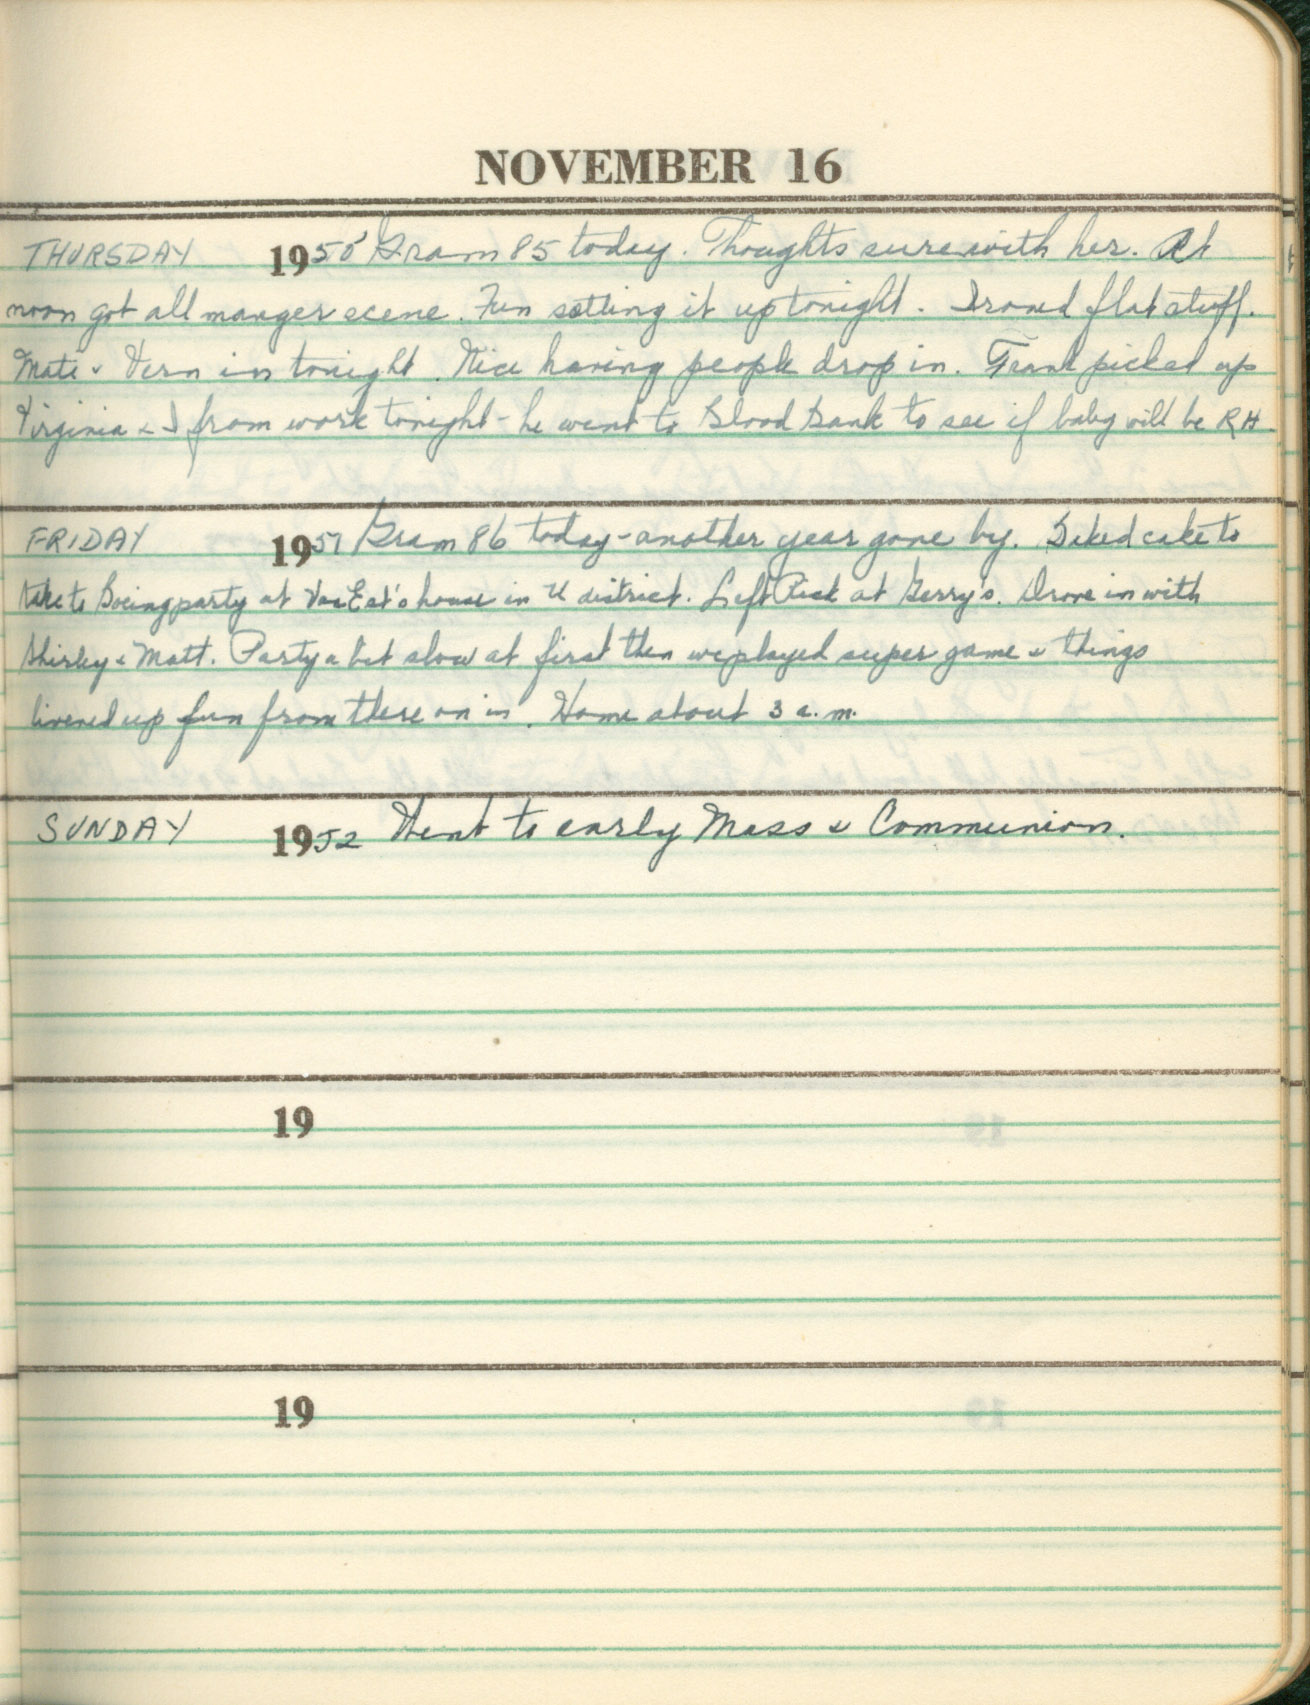 NOVEMBER 16
THURSDAY 1950 Gram 85 today. Thoughts sure with her. At
noon got all manger scene. Fun setting it up tonight. Ironed flat stuff.
Mati & Vern in tonight. Nice having people drop in. Frank picked up
Virginia & I from work tonight - he went to Blood Bank to see if baby will be RH.
FRIDAY 1951 Gram 86 today - another year gone by. Baked cake to
take to Boeing party at house in U district. Left at Gerry's. Drove in with
Shirley & Matt. Party a bit slow at first then we played super game & things
livened up fun from there on in. Home about 3 a.m.
SUNDAY 1952 Went to early Mass & Communion.
19
19